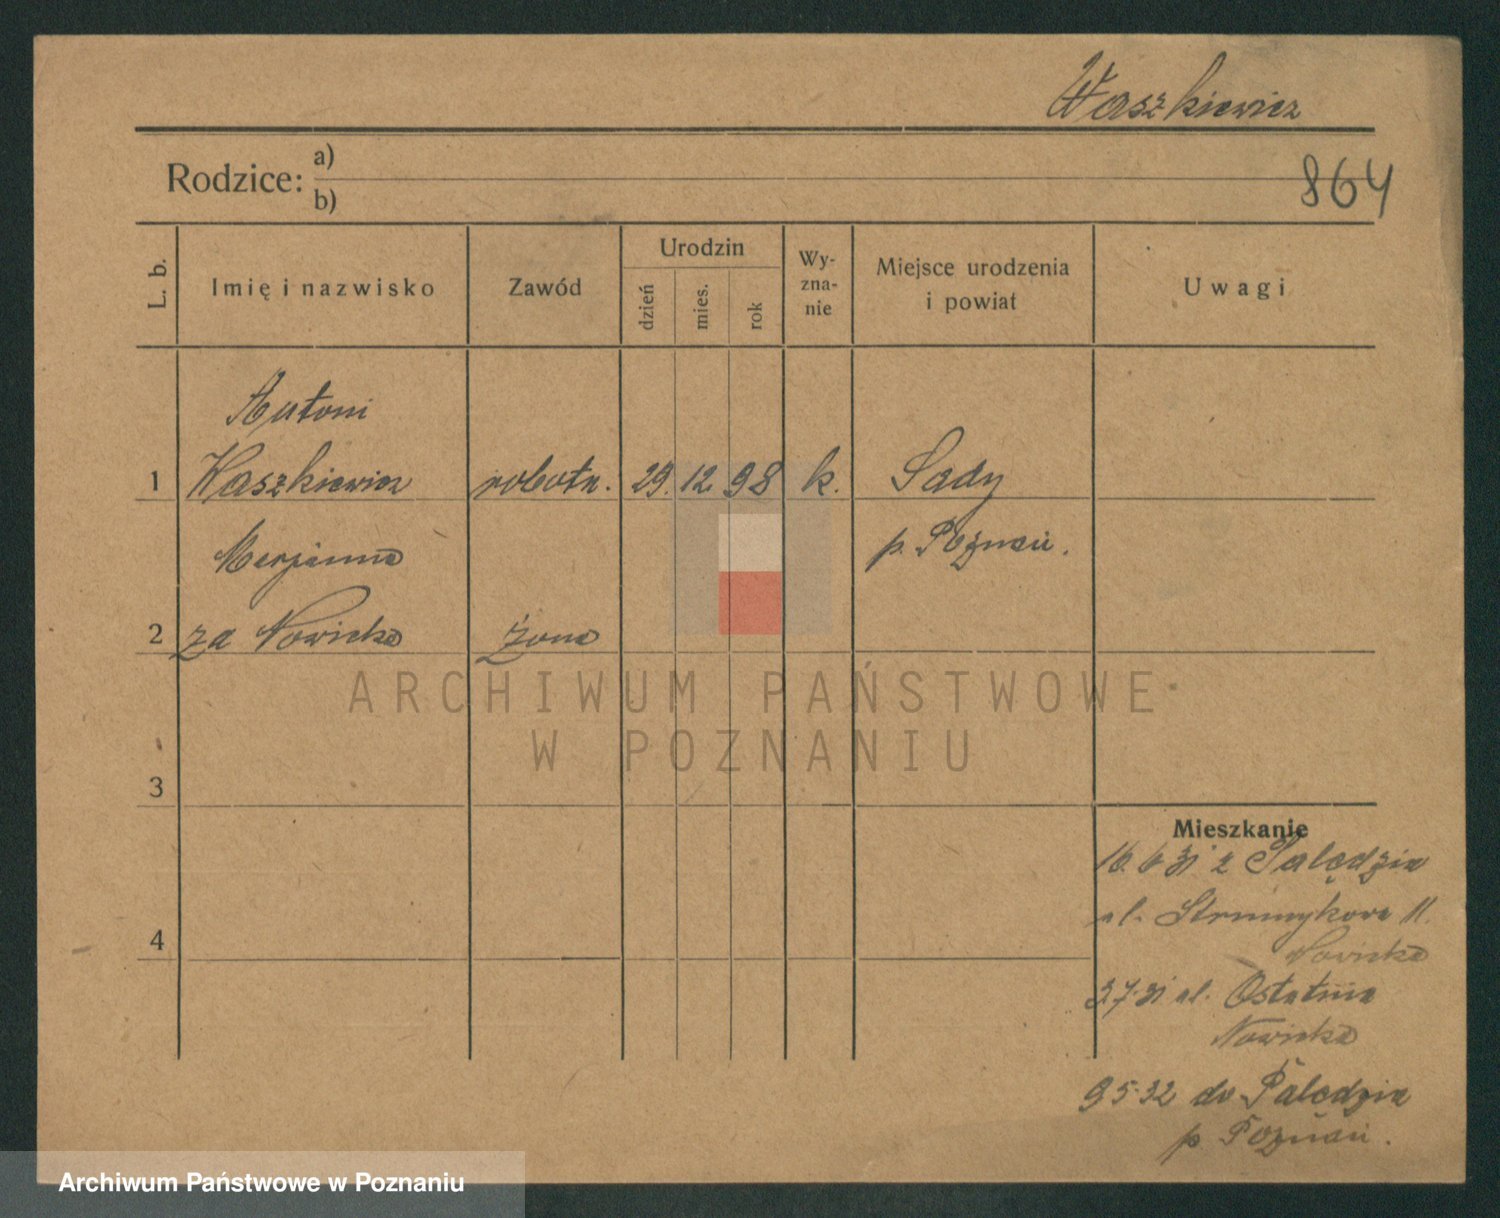 Waszkiewicz
Rodzice: a)
b)
864
L. b.
Imię i nazwisko
Zawód
Urodzin
dzień
mies.
rok
Wy-
zna-
nie
Miejsce urodzenia
i powiat
Uwagi
Antoni
1 Waszkiewicz robotn. 29. 12. 98 k. Sady
p. Poznań.
Marjanna
2 za Nowicka żona
3
4
Mieszkanie
16.6.31 z Palędzia
ul. Strumykowa 11.
Nowicka
3.7.31 ul. Ostatnia
Nowicka
9.5.32 do Palędzia
p. Poznań.
ARCHIWUM PAŃSTWOWE
W POZNANIU
Archiwum Państwowe w Poznaniu